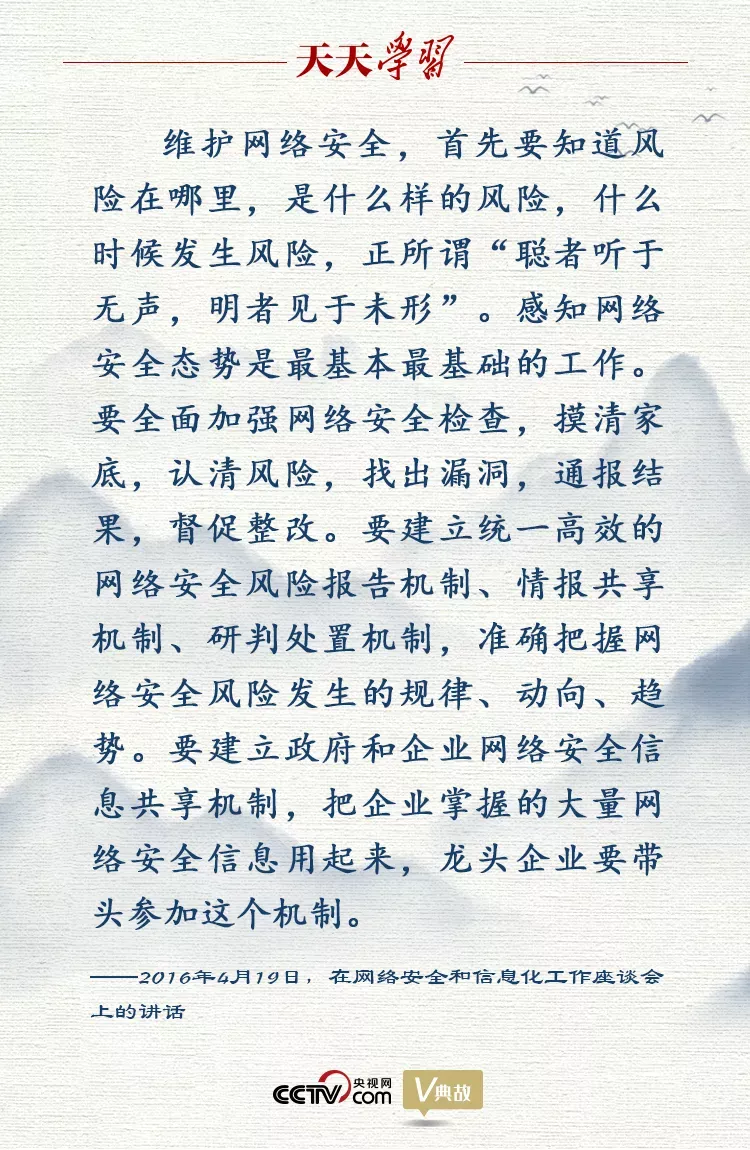 天天學習
维护网络安全，首先要知道风
险在哪里，是什么样的风险，什么
时候发生风险，正所谓“聪者听于
无声，明者见于未形”。感知网络
安全态势是最基本最基础的工作。
要全面加强网络安全检查，摸清家
底，认清风险，找出漏洞，通报结
果，督促整改。要建立统一高效的
网络安全风险报告机制、情报共享
机制、研判处置机制，准确把握网
络安全风险发生的规律、动向、趋
势。要建立政府和企业网络安全信
息共享机制，把企业掌握的大量网
络安全信息用起来，龙头企业要带
头参加这个机制。
——2016年4月19日，在网络安全和信息化工作座谈会
上的讲话
CCTV.com 央视网 V典故